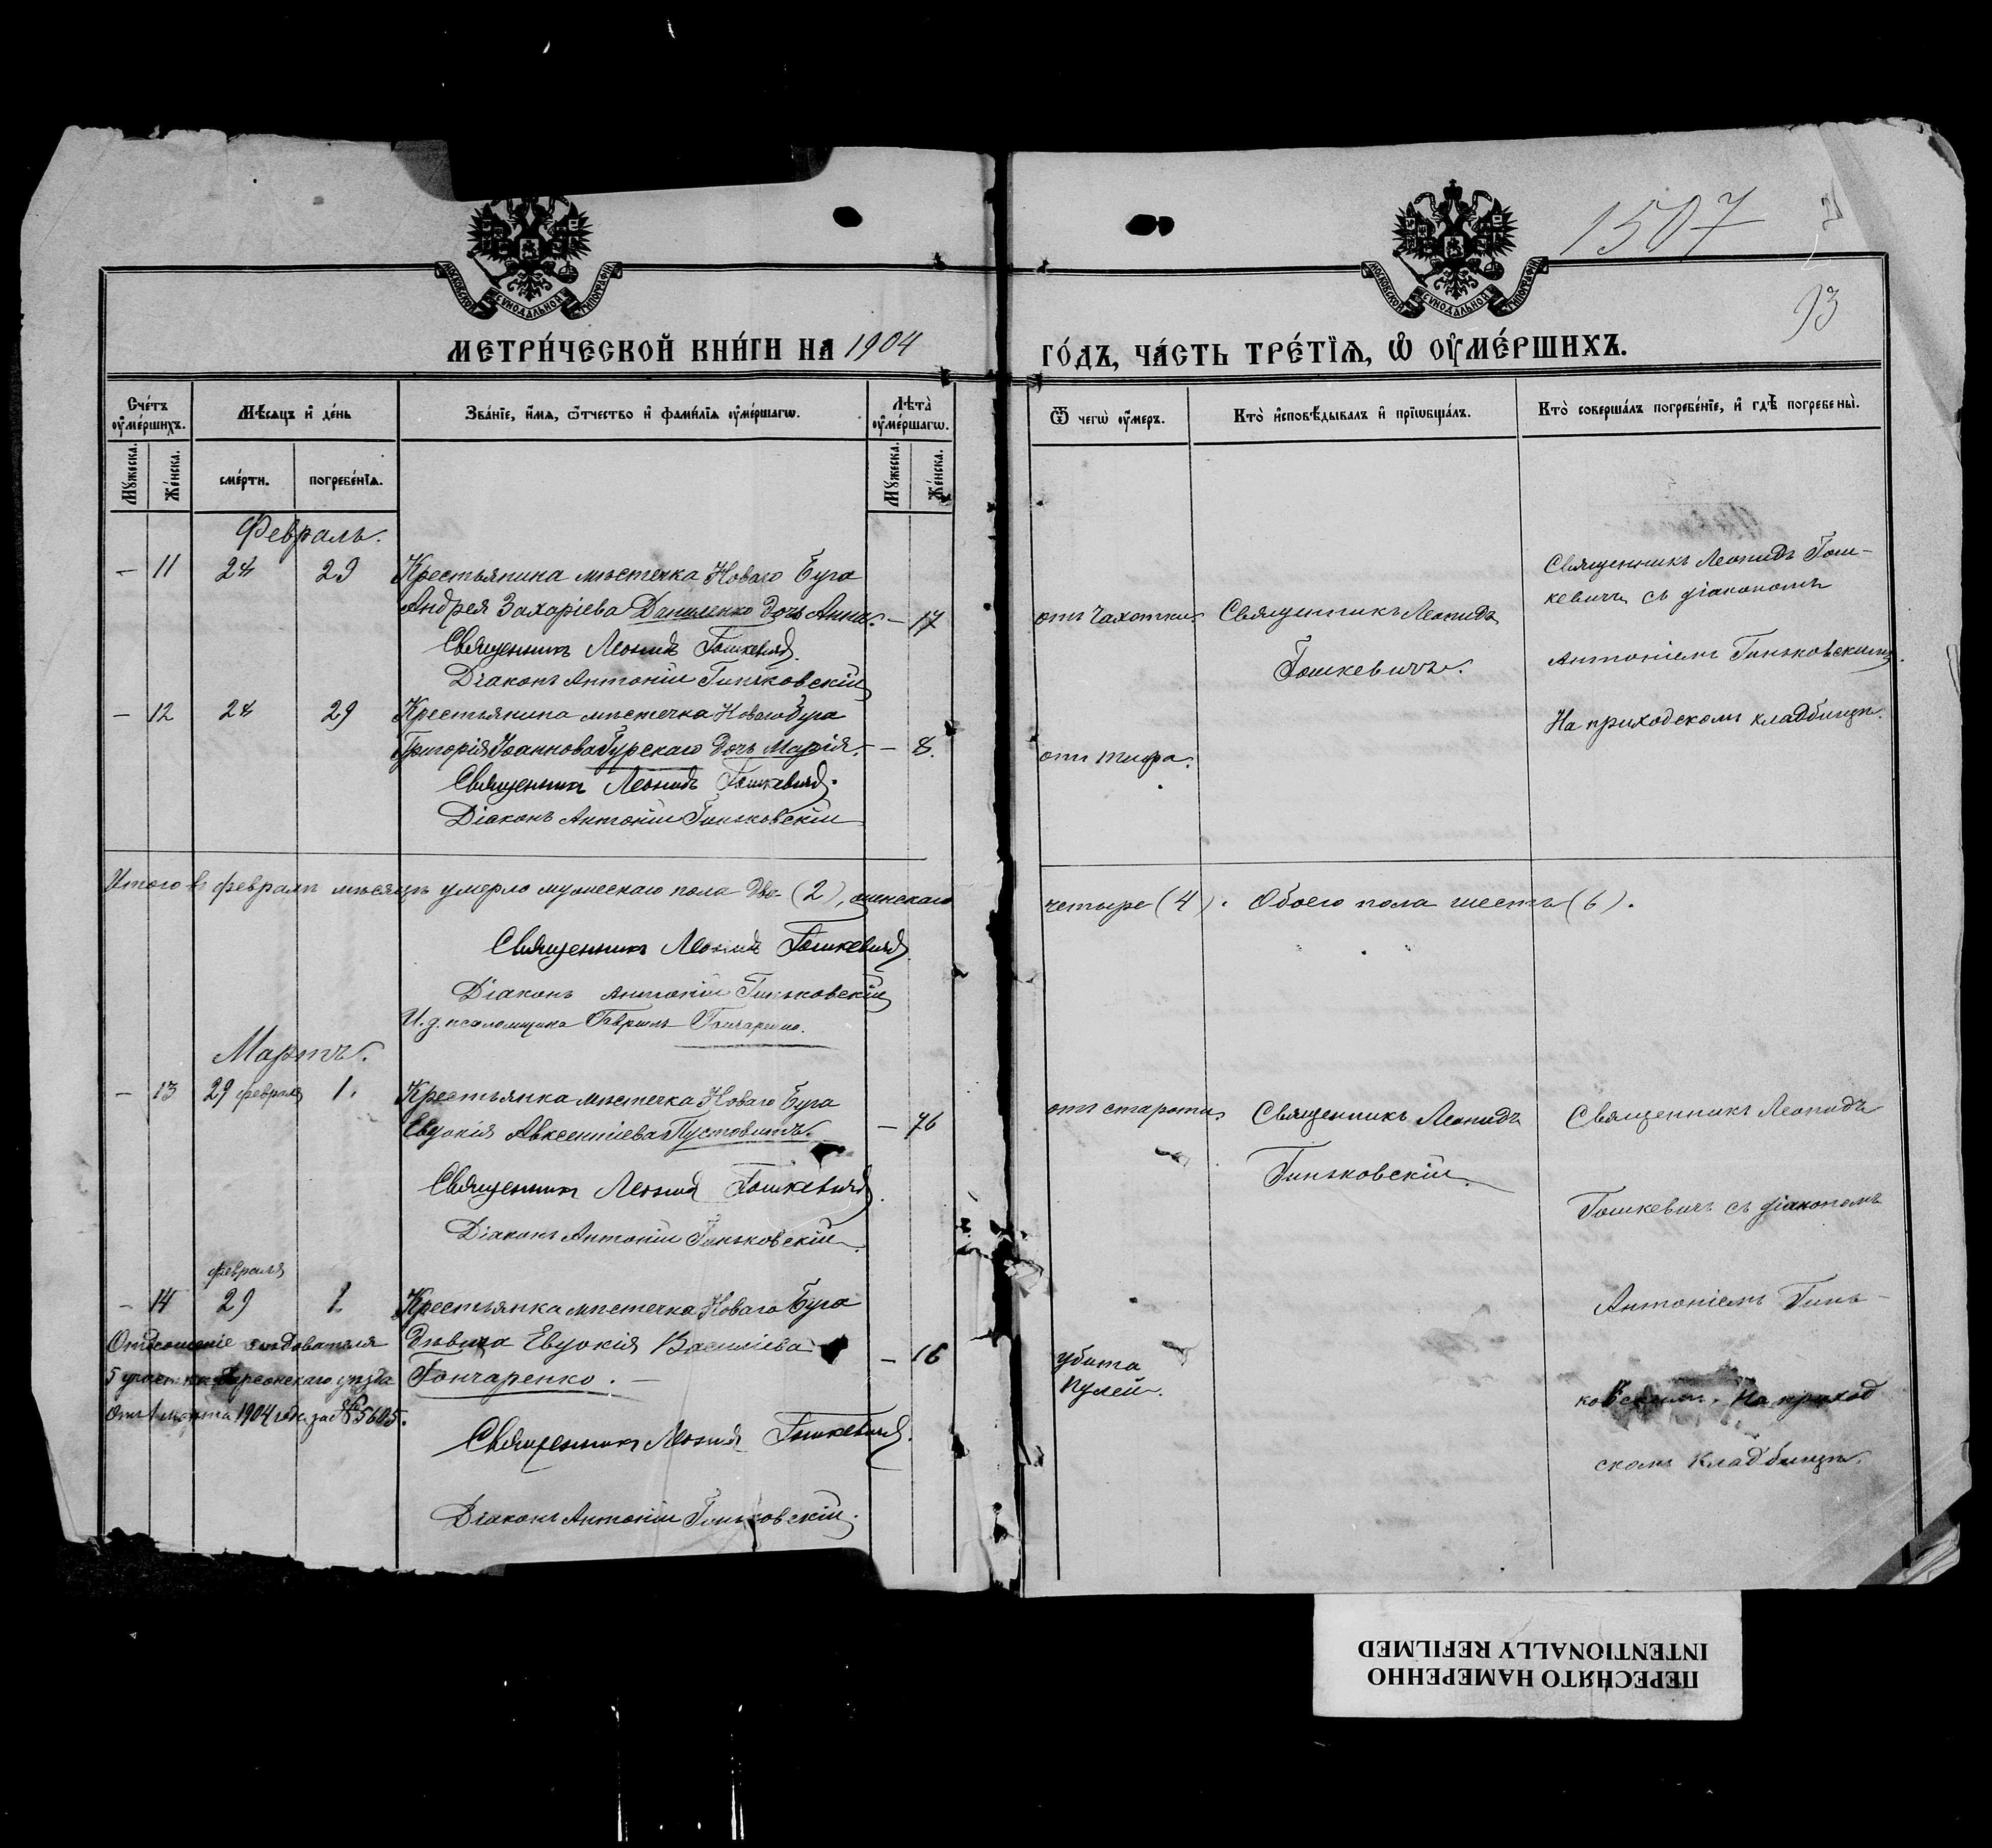 1507
93
МОСКОВСКОЙ СѴНОДАЛЬНОЙ ТИПОГРАФІИ
МОСКОВСКОЙ СѴНОДАЛЬНОЙ ТИПОГРАФІИ
МЕТРИ́ЧЕСКОЙ КНИ́ГИ НА 1904
ГО́ДЪ, ЧА́СТЬ ТРЕ́ТЇѦ, Ѽ ОУ҆МЕ́РШИХЪ.
Сче́тъ оу҆ме́ршихъ.
Мꙋ́жеска.
Же́нска.
Мѣ́сѧцъ и҆ де́нь
сме́рти.
погребе́нїѧ.
Зва́нїе, и҆́мѧ, ѻ҆́тчество и҆ фами́лїѧ оу҆ме́ршагѡ.
Лѣ̀та оу҆ме́ршагѡ.
Мꙋ́жеска.
Же́нска.
Ѿ чегѡ̀ оу҆́меръ.
Кто̀ и҆сповѣ́дывалъ и҆ прїѡбща́лъ.
Кто̀ соверша́лъ погребе́нїе, и҆ гдѣ̀ погребены̀.
Февраль.
– 11 24 29 Крестьянина мѣстечка Новаго Буга
Андрея Захаріева Даниленко дочь Анна. – 17
Священникъ Леонидъ Гошкевичъ.
Діаконъ Антоній Гиньковскій
отъ чахотки. Священникъ Леонидъ
Гошкевичъ.
Священникъ Леонидъ Гош-
кевичъ съ діакономъ
Антоніемъ Гиньковскимъ.
На приходскомъ кладбищѣ.
– 12 24 29 Крестьянина мѣстечка Новаго Буга
Григорія Іоаннова Гурскаго дочь Марія. – 8.
Священникъ Леонидъ Гошкевичъ.
Діаконъ Антоній Гиньковскій
отъ тифа.
Итого въ февралѣ мѣсяцѣ умерло мужескаго пола два (2), женскаго
четыре (4). Обоего пола шесть (6).
Священникъ Леонидъ Гошкевичъ.
Діаконъ Антоній Гиньковскій
И. д. псаломщика Гаврилъ Гончаренко.
Мартъ.
– 13 29 февраля 1. Крестьянка мѣстечка Новаго Буга
Евдокія Авксентіева Пустовитъ. – 76
Священникъ Леонидъ Гошкевичъ.
Діаконъ Антоній Гиньковскій.
отъ старости. Священникъ Леонидъ
Гиньковскій.
Священникъ Леонидъ
Гошкевичъ съ діакономъ
Антоніемъ Гинь-
ковскимъ. На приход
скомъ кладбищѣ.
февраля
– 14 29 1. Крестьянка мѣстечка Новаго Буга
Отношеніе слѣдователя
5 участка Херсонскаго уѣзда
отъ 1 марта 1904 года за № 5605.
дѣвица Евдокія Василіева – 16
Гончаренко. –
Священникъ Леонидъ Гошкевичъ.
Діаконъ Антоній Гиньковскій.
убита
пулей.
ПЕРЕСНЯТО НАМЕРЕННО
INTENTIONALLY REFILMED